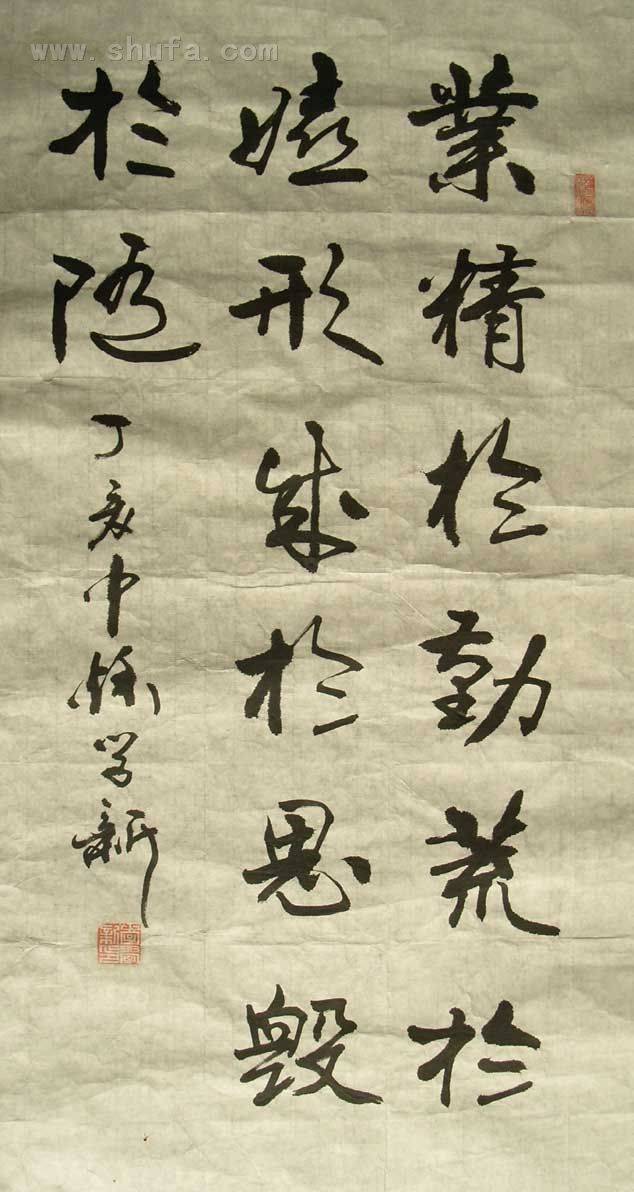 www.shufa.com
業精於勤荒於
嬉形成於思毀
於随
丁亥中学新